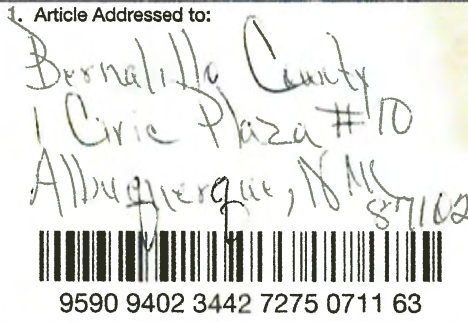 1. Article Addressed to:
Bernalillo County
1 Civic Plaza #10
Albuquerque, NM
87102
9590 9402 3442 7275 0711 63